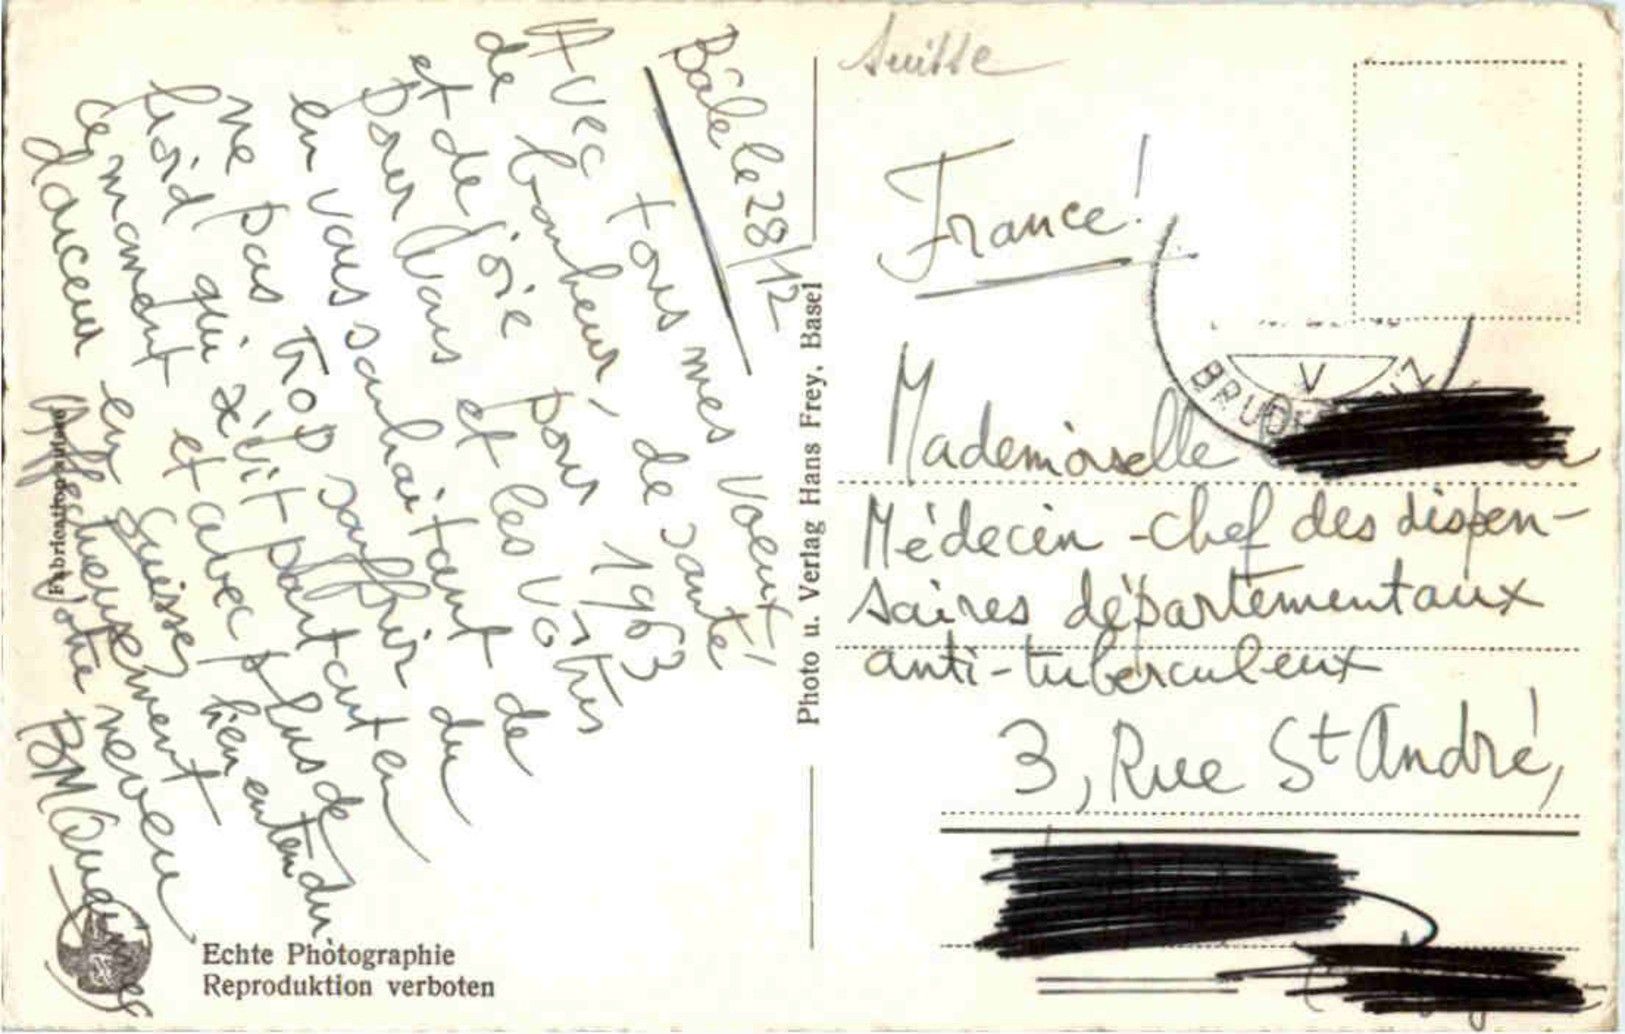 Bâle le 28/12
Avec tous mes voeux
de bonheur, de santé
et de joie pour 1963
pour Vous et les Vôtres
en vous souhaitant de
ne pas trop souffrir du
froid qui sévit partout en
ce moment et avec plus de
douceur en Suisse bien entendu
Affectueusement
Votre neveu
Fabrication suisse
Echte Photographie
Reproduktion verboten
Photo u. Verlag Hans Frey, Basel
Suisse
France!
V
BRUD
Mademoiselle
Médecin-chef des dispen-
saires départementaux
anti-tuberculeux
3, Rue St André,